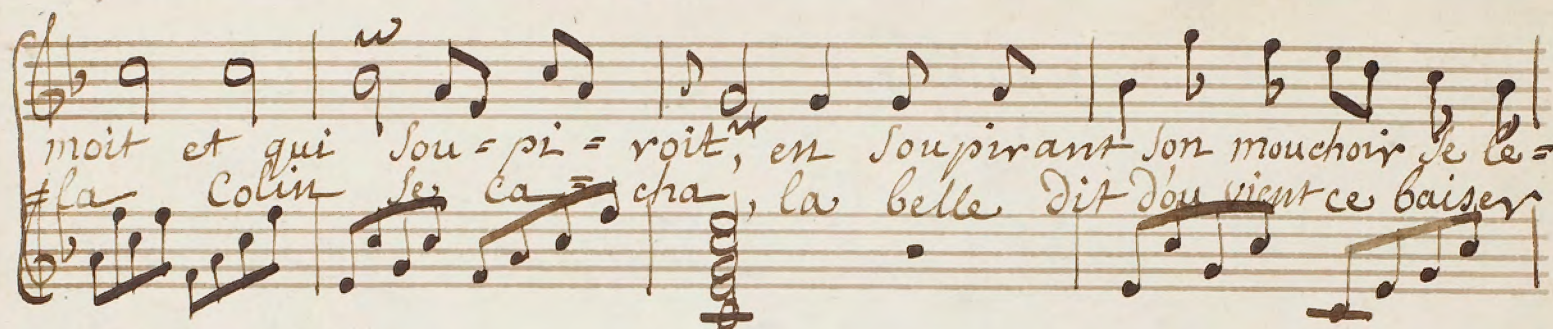 moit et qui sou=pi=roit, en soupirant son mouchoir se le=
=la Colin se ca=cha, la belle dit d'ou vient ce baiser